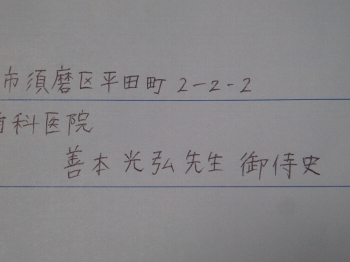 市須磨区平田町2-2-2
歯科医院
善本光弘先生 御侍史